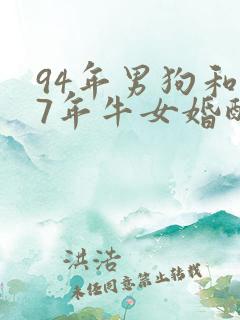 94年男狗和
7年牛女婚配
洪浩
未经同意禁止转载